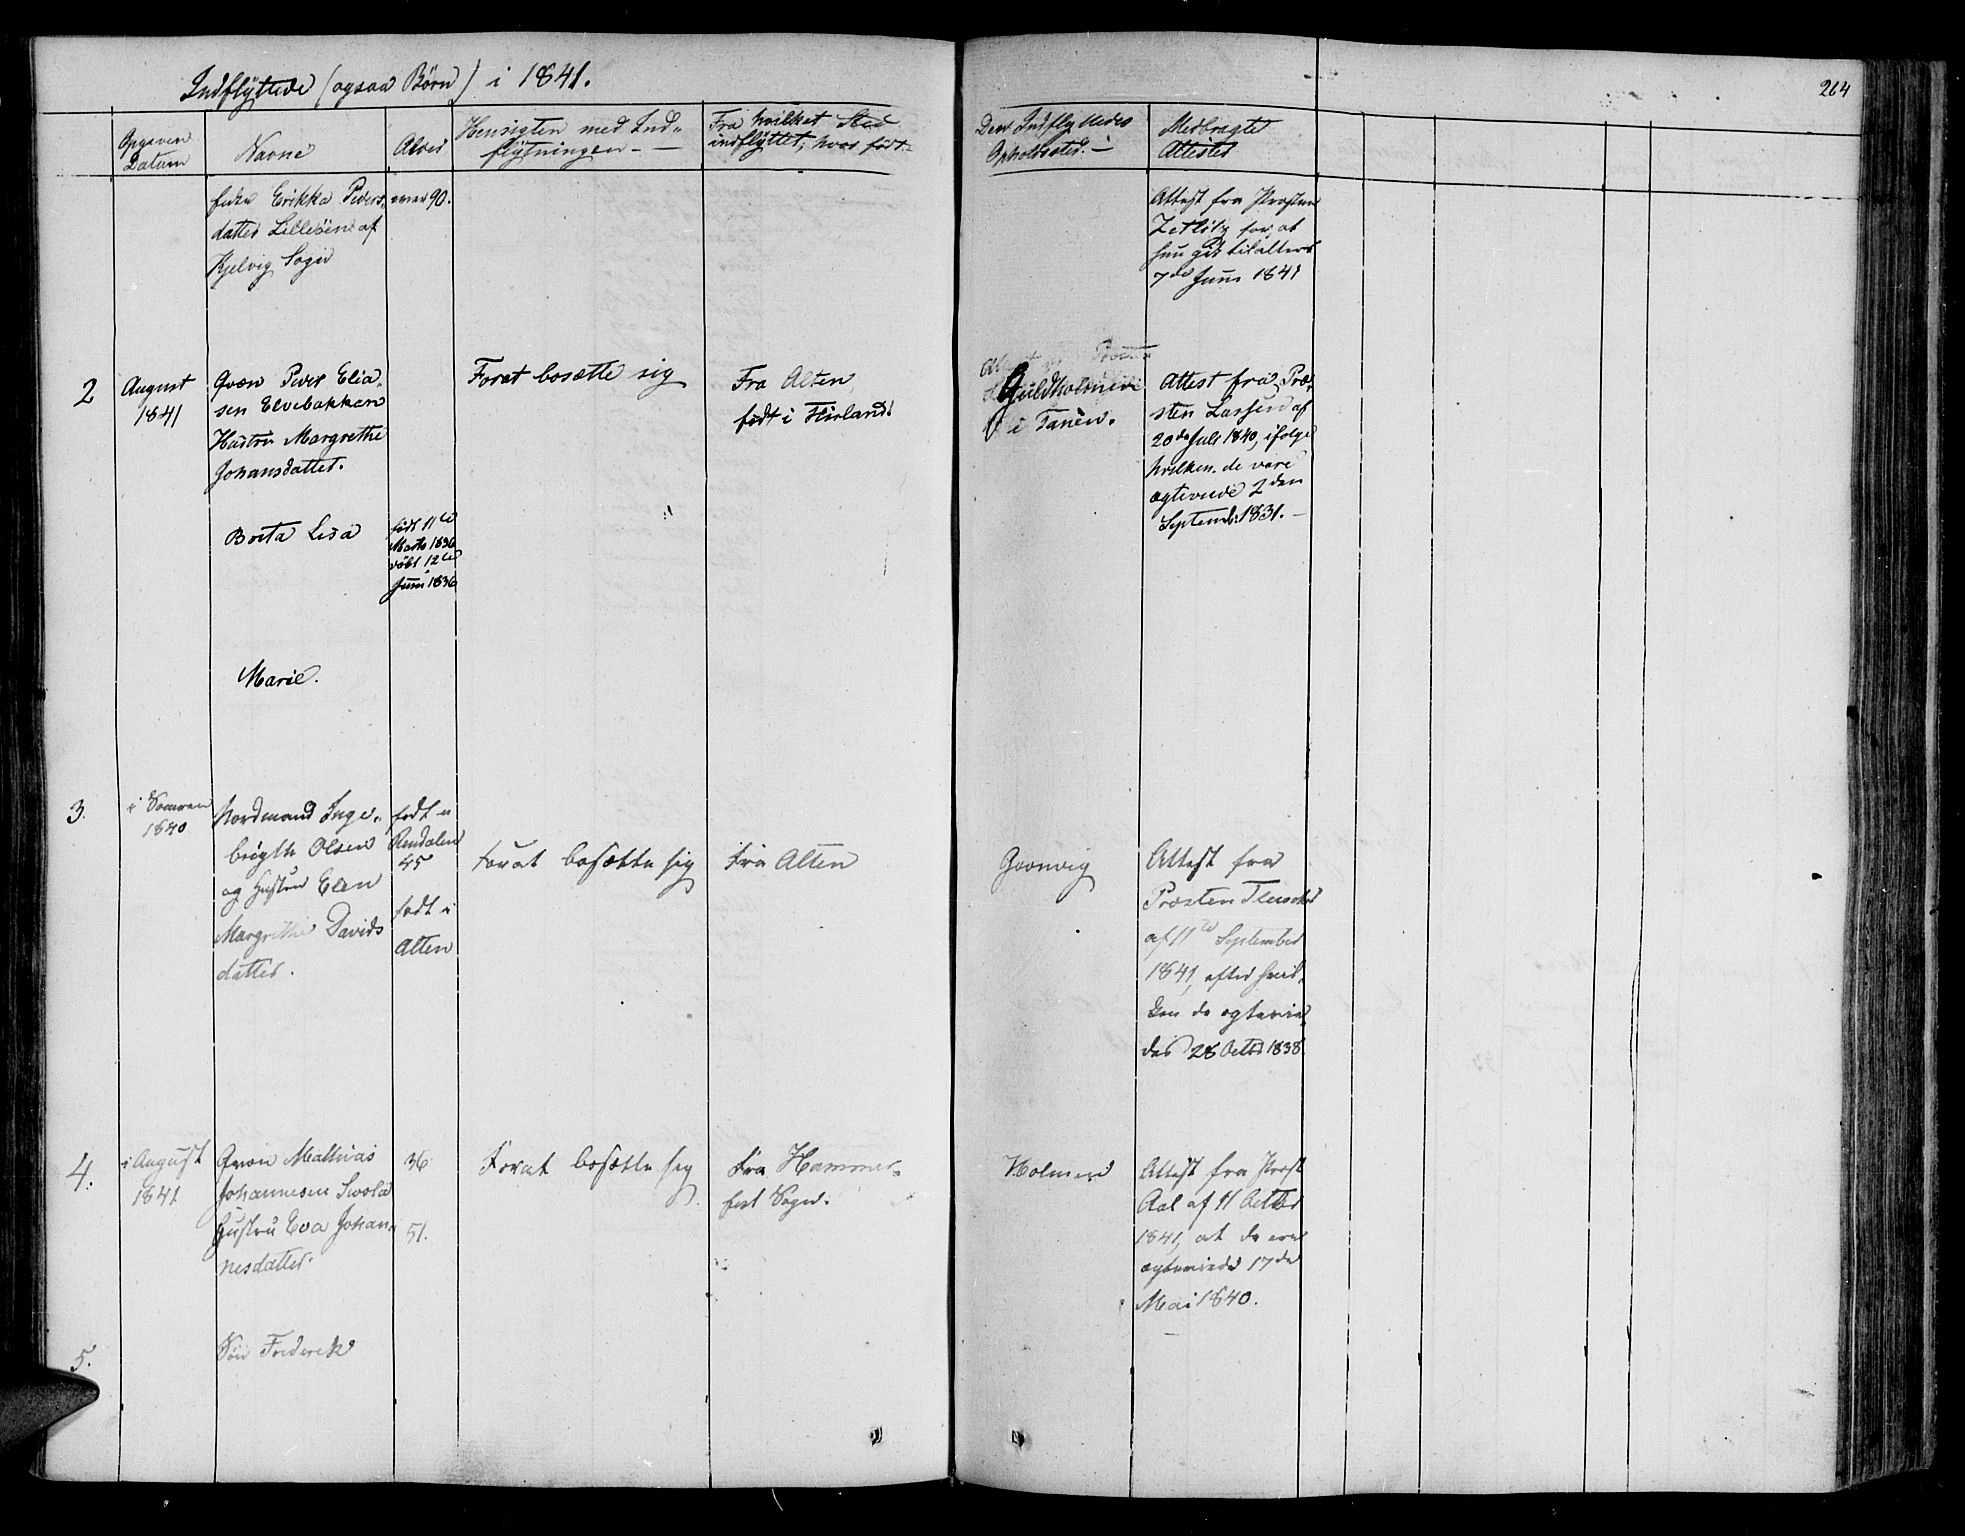 Indflyttede (ogsaa Børn) i 1841.
264
Opgiven Datum
Navne
Alder
Hensigten med Ind-
flytningen - —
Fra hvilket Sted
indflyttet, hvor født.
Den Indflyttedes
Opholdssted. —
Medbragte
Attester
Erikka Peders-
datter Lillebøen af
Kjelvig Sogn
over 90.
Attest fra Præsten
Zetlitz for, at
hun gik til alters
7de Juni 1841
2
August
1841
Qvæn Peder Elia-
sen Elvebakken
Hustru Margrethe
Johansdatter.
Forat bosætte sig
Fra Alten
født i Finland.
Guldholmen
i Tanen.
Attest fra Præ-
sten Lassen af
20de Juli 1840, ifølge
hvilken de vare
ægteviede 2den
Septemb: 1831. —
Breta Lisa
født 11te
Marts 1836
døbt 12te
Juni 1836
Marie.
3.
i Somren
1840
Nordmand Inge-
brigth Olsen
og Hustru Elen
Margrethe Davids
datter.
født i
Rendalen
45
født i
Alten
Forat bosætte sig
Fra Alten
Goonvig
Attest fra
Præsten
af 11te September
1841, efter hvil-
ken de ægtevie-
des 28 Octbr 1838.
4.
i August
1841
Qvæn Mathias
Johannesen
Hustru Eva Johan-
nesdatter.
36
51.
Forat bosætte sig
Fra Hammer-
fest Sogn.
Holmen
Attest fra Præst
Aal af 11 Octbr
1841, at de ere
ægteviede 17de
Mai 1840.
5.
Søn Frederik